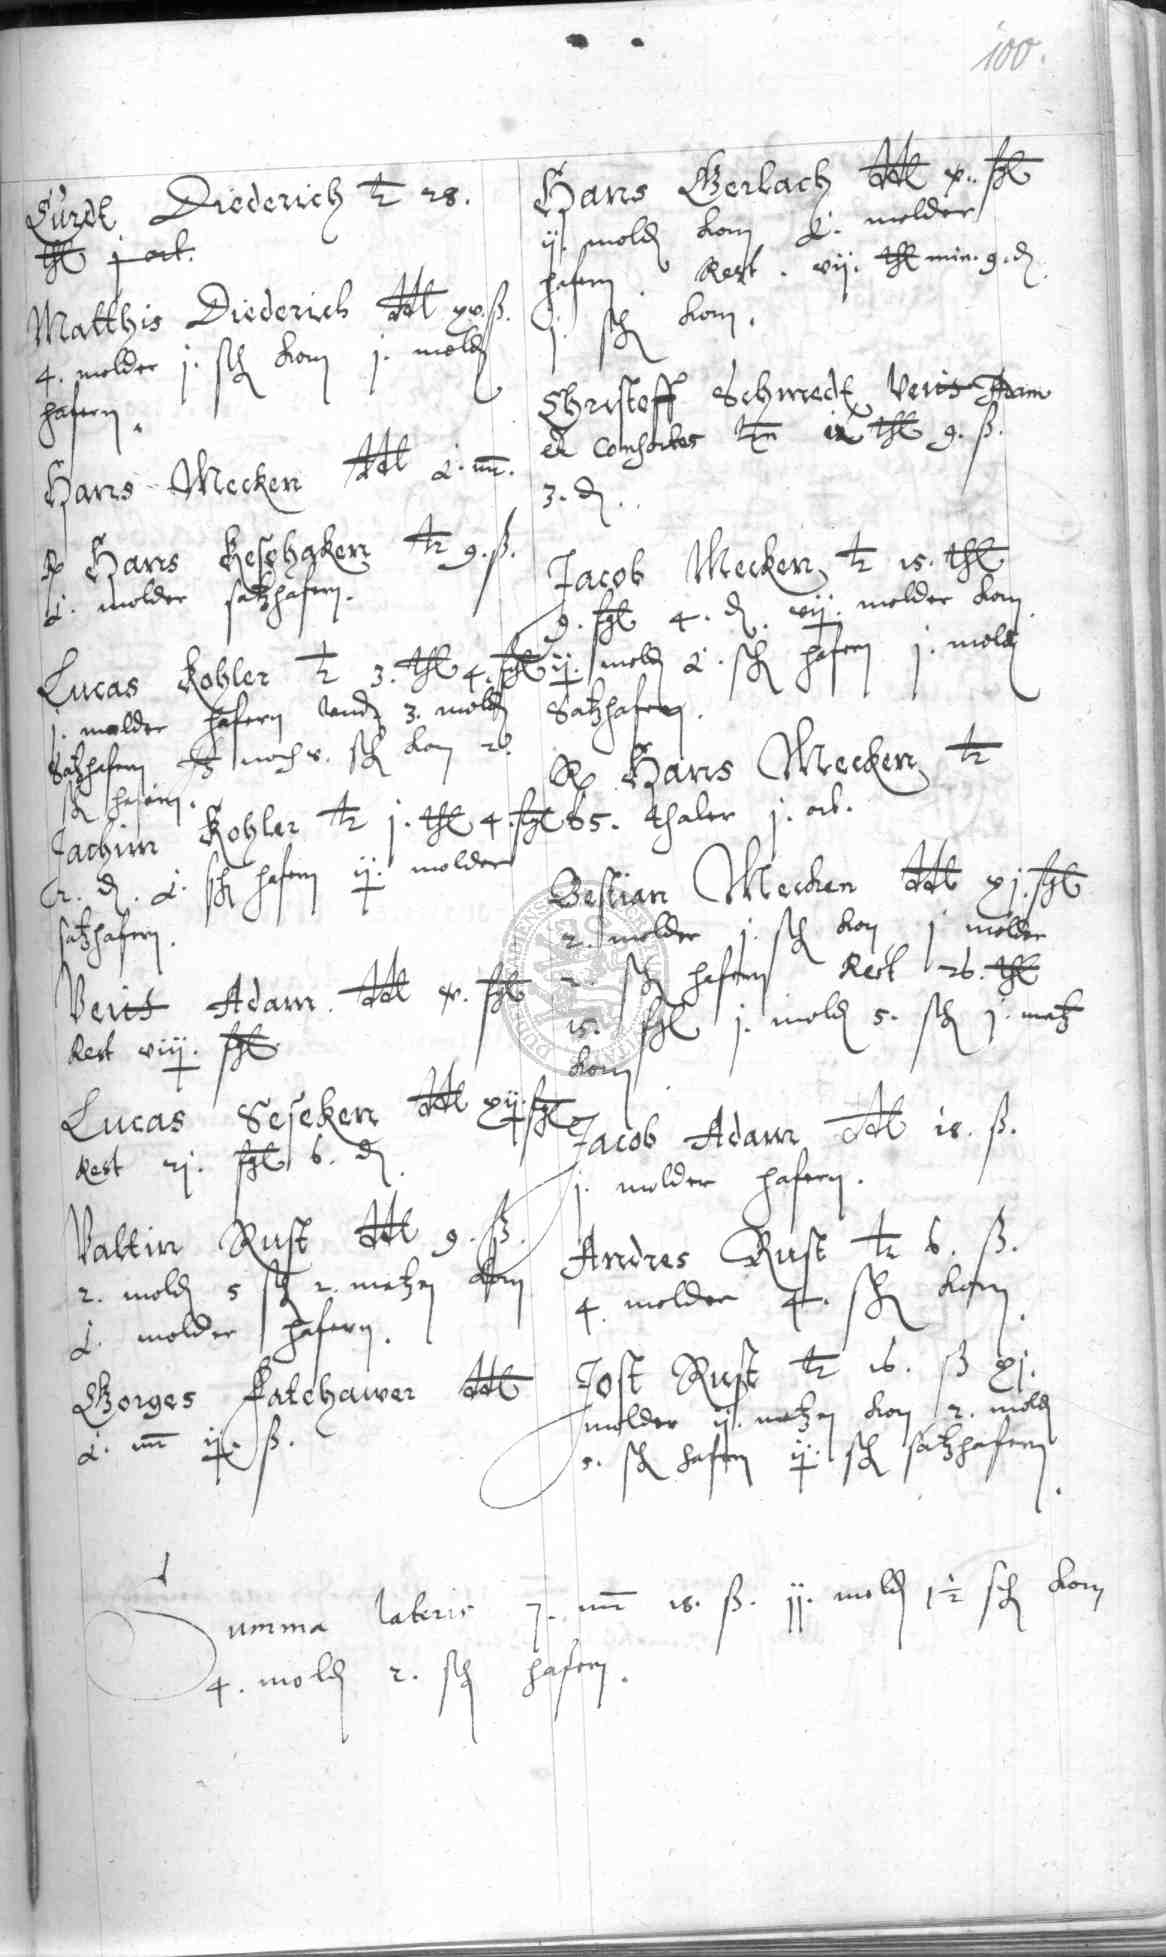 100.
Curdt Diederich tz 28.
thl j ort.
Matthis Diederich ddt xv. ß.
4. molder j. sch korn j. mold
hafern.
Hans Mecken ddt
R Hans Keseheken tz 9. ß.
molder satzhafern.
Lucas Kohler tz 3. thl 4. sgl
j. molder hafern vnd 3. mold
Satzhafern noch sch korn 2.
sch hafern.
Jachim Kohler tz j. thl 4. sgl
2. d. sch hafern ij. molder
satzhafern.
Veits Adam ddt xv. sgl
Rest viij. sgl
Lucas Seseken ddt xij. sgl
Rest sgl 6. d.
Valtin Rust ddt 9. ß.
2. mold 5 sch 2. metzen korn
molder hafern.
Gorges ddt
ij. ß.
Hans Gerlach ddt x. sgl
ij. mold korn molder
hafern. Rest. vij. thl min. 9. d.
j. sch korn.
Christoff Schmedt, Veits Adam
et Consortes tzn ix thl 9. ß.
3. d.
Jacob Mecken, tz 15. thl
9. sgl 4. d. vij. molder korn.
ij. mold sch hafern j. mold
Satzhafern.
R Hans Mecken, tz
65. thaler j. ort.
Bestian Mecken ddt xj. sgl
2. molder j. sch korn j molder
2. sch hafern Rest 26. thl
15. sgl j. mold 5. sch j. metz
korn.
Jacob Adam ddt 18. ß.
j. molder hafern.
Andres Rust tz 6. ß.
4. molder 4. sch korn.
Jost Rust tz 16. ß xj.
molder ij. metzen korn 2. mold
5. sch hafern ij. sch satzhafern.
Summa lateris 7. 18. ß. ij. mold 1½ sch korn
4. mold 2. sch hafern.